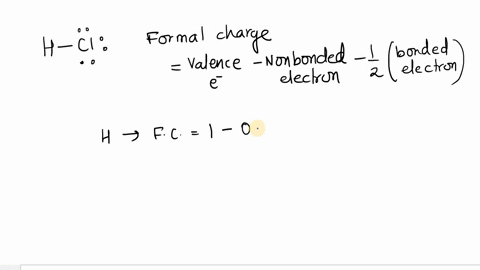 H—Cl: Formal charge
= Valence e⁻ - Nonbonded electron - 1/2 (bonded electron)
H → F.C. = 1 - 0